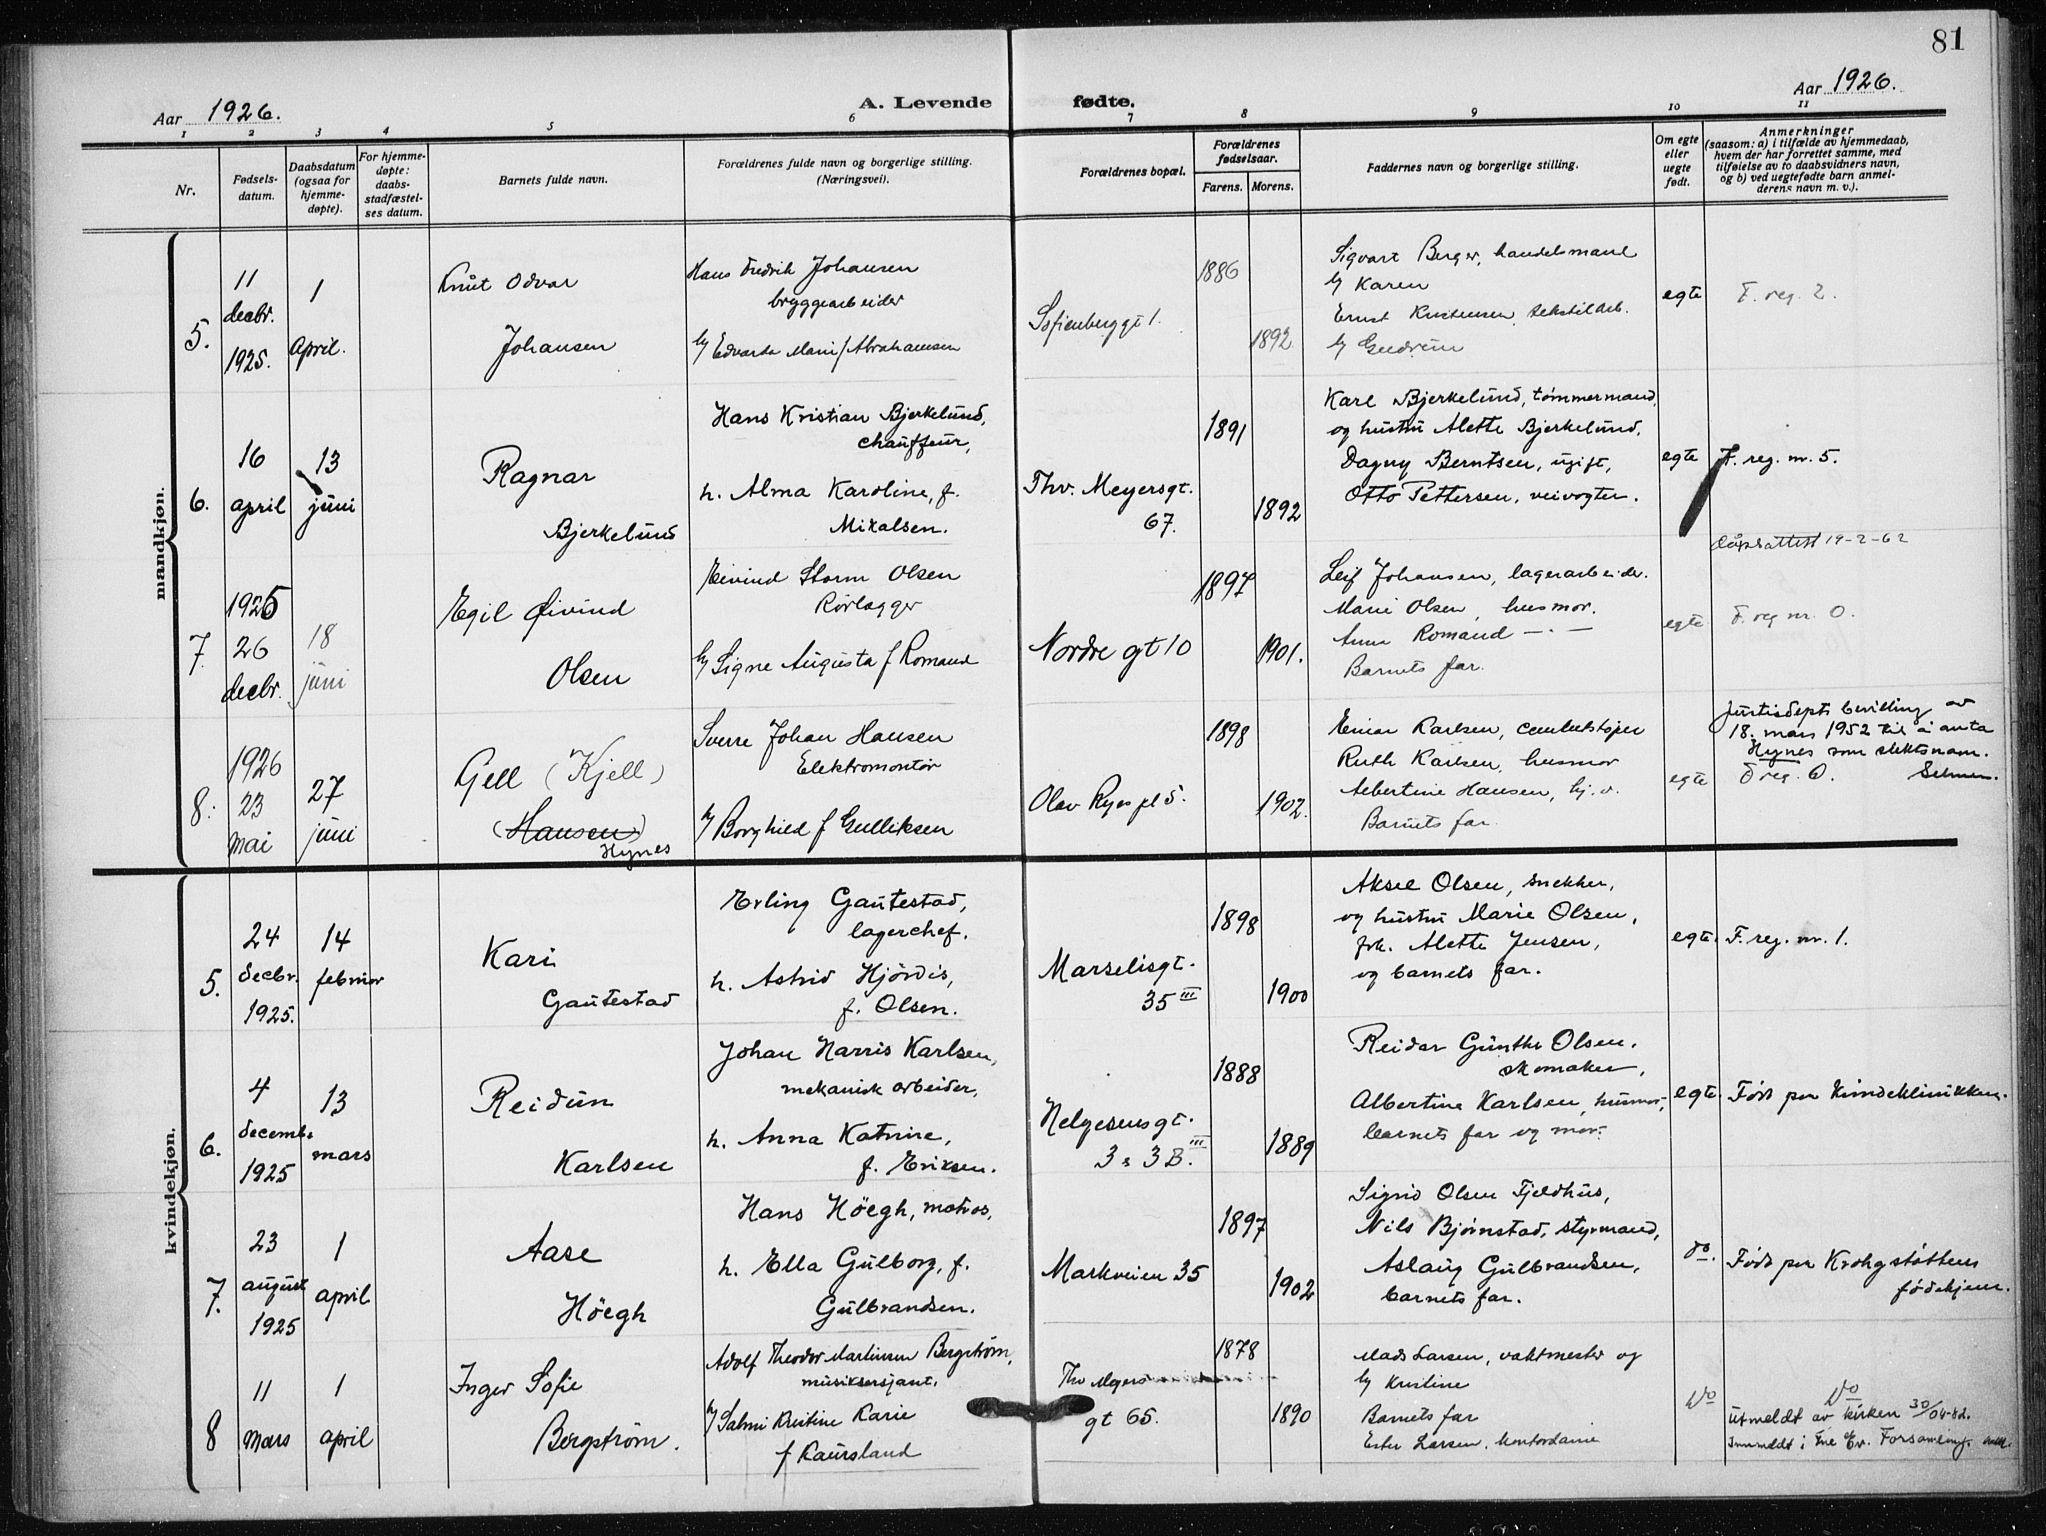 81
Aar 1926.
A. Levende fødte.
Aar 1926.
1 2 3 4 5 6 7 8 9 10 11
Nr.
Fødsels-
datum.
Daabsdatum
(ogsaa for
hjemme-
døpte).
For hjemme-
døpte:
daabs-
stadfæstel-
ses datum.
Barnets fulde navn.
Forældrenes fulde navn og borgerlige stilling.
(Næringsvei).
Forældrenes bopæl.
Forældrenes
fødselsaar.
Farens. Morens.
Faddernes navn og borgerlige stilling.
Om egte
eller
uegte
født.
Anmerkninger
(saasom: a) i tilfælde av hjemmedaab,
hvem der har forrettet samme, med
tilføielse av to daabsvidners navn,
og b) ved uegtefødte barn anmel-
derens navn m. v.).
mandkjøn.
5.
11
decbr.
1925.
1
April.
Knut Odvar
Johansen
Hans Fredrik Johansen
bryggearbeider
h/ Edvarda Marie f Abrahamsen
Sofienberggt 1.
1886
1892
Sigvart Berger, handelsmand
h/ Karen
Ernst Kristensen, tekstilarb.
h/ Gudrun
egte
F. reg. 2.
6.
16
april
13
juni
Ragnar
Bjerkelund
Hans Kristian Bjerkelund,
chauffeur,
h. Alma Karoline, f.
Mikalsen.
Thv. Meyersgt.
67.
1891
1892
Karl Bjerkelund, tømmermand,
og hustru Alette Bjerkelund,
Dagny Berntsen, ugift,
Otto Pettersen, veivogter.
egte
F. reg. nr. 5.
Dåpsattest 19-2-62
7.
1925
26
decbr.
18
juni
Egil Øivind
Olsen
Eivind Storm Olsen
Rørlægger
h/ Signe Augusta f Romand
Nordre gt 10
1897
1901.
Leif Johansen, lagerarbeider.
Marie Olsen, husmor.
Anna Romand — · —
Barnets far.
egte
F. reg nr. 0.
8.
1926
23
mai
27
juni
Gell (Kjell)
(Hansen)
Hynes
Sverre Johan Hansen
Elektromontør
h/ Borghild f Gulliksen
Olav Ryes pl 5.
1898
1902.
Einar Karlsen,
Ruth Karlsen, husmor
Albertine Hansen, hj. v.
Barnets far
egte
Justisdepts bevilling av
18. mars 1952 til å anta
Hynes som slektsnavn.
F reg. 0.
kvindekjøn.
5.
24
decbr.
1925.
14
februar
Kari
Gautestad
Erling Gautestad,
lagerchef.
h. Astrid Hjördis,
f. Olsen.
Marselisgt.
35 III
1898
1900
Aksel Olsen, snekker,
og hustru Marie Olsen,
frk. Alette Jensen,
og barnets far.
egte.
F. reg. nr. 1.
6.
4
decemb.
1925
13
mars
Reidun
Karlsen
Johan Harris Karlsen,
mekanisk arbeider,
h. Anna Katrine,
f. Eriksen.
Helgesensgt.
3 B. III
1888
1889
Reidar Günther Olsen,
skomaker,
Albertine Karlsen, husmor,
barnets far og mor.
egte
Født paa Kvindeklinikken.
7.
23
august
1925
1
april
Aase
Höegh
Hans Höegh, matros,
h. Ella Gulborg, f.
Gulbrandsen.
Markveien 35
1897
1902
Sigrid Olsen Fjeldhus,
Nils Bjørnstad, styrmand,
Aslaug Gulbrandsen,
barnets far.
do.
Født paa Krohgstøttens
fødehjem.
8
11
mars
1
april
Inger Sofie
Bergstrøm.
Adolf Theodor Martinsen Bergstrøm,
musiksersjant.
h/ Salmi Kristine Karie
f Kaursland
Thv Meyers
gt 65.
1878
1890
Mads Larsen, vaktmester og
h/ Kristine
Barnets far
Ester Larsen, kontordame
Do
Do
Utmeldt av kirken 30/04-82.
Innmeldt i Fre Ev. Forsamling.